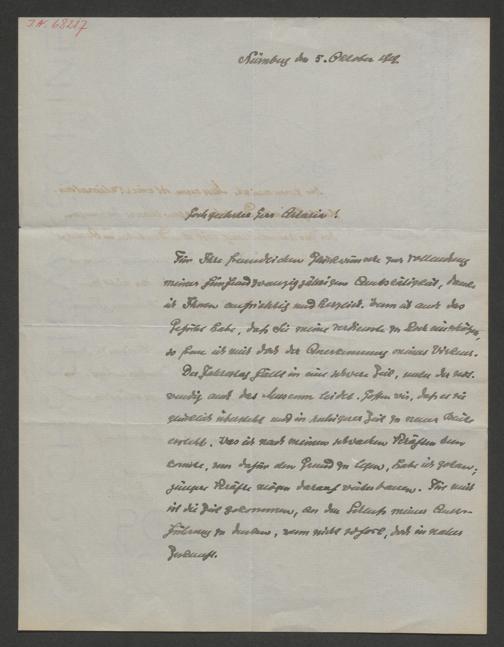 J.N. 68217
Nürnberg den 5. Oktober 1919.
Hochgeehrter Herr
Für Ihre freundlichen Glückwünsche zur Vollendung
meiner fünfundzwanzigjährigen Amtstätigkeit, danke
ich Ihnen aufrichtig und herzlich. Wenn ich auch das
Gefühl habe, daß Sie meine Verdienste zu hoch einschätzen,
so freue ich mich doch der Anerkennung meines Wirkens.
Der Jahrestag fällt in eine schwere Zeit, unter der not-
wendig auch das Museum leidet. Hoffen wir, daß es sie
glücklich übersteht und in ruhigerer Zeit zu neuer Blüte
ersteht. Was ich nach meinen schwachen Kräften tun
konnte, um dafür den Grund zu legen, habe ich getan;
jüngere Kräfte mögen darauf weiterbauen. Für mich
ist die Zeit gekommen, an den Schluß meiner Amts-
führung zu denken, wenn nicht sofort, doch in naher
Zukunft.